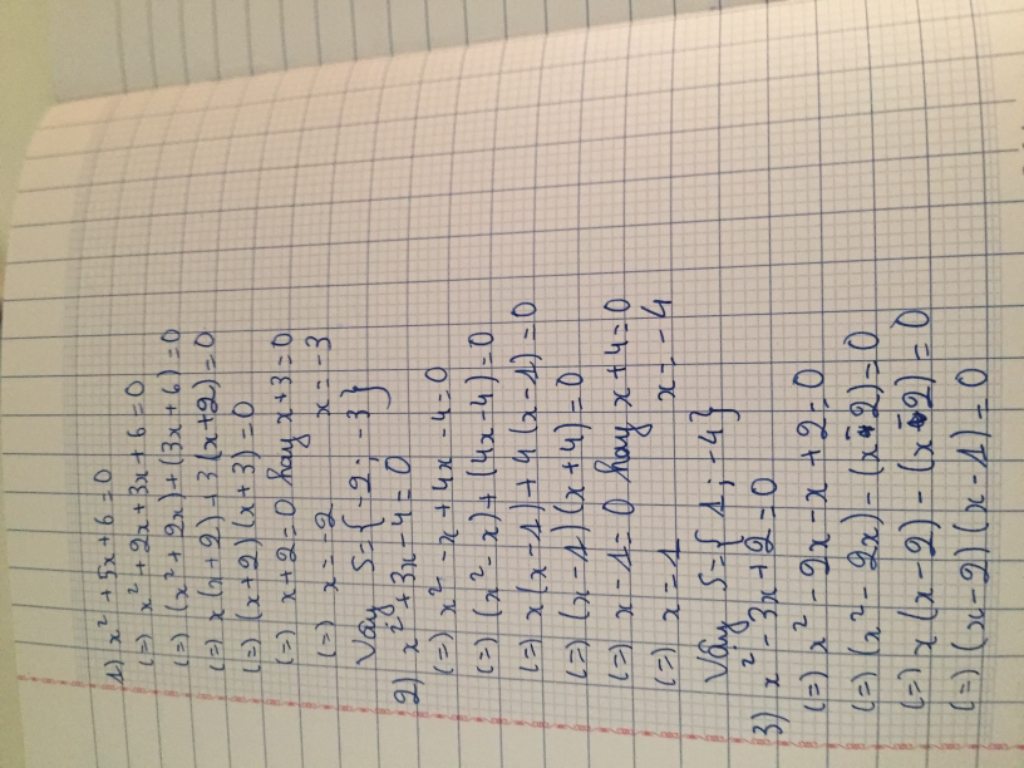 1) x² + 5x + 6 = 0
(=) x² + 2x + 3x + 6 = 0
(=) (x² + 2x) + (3x + 6) = 0
(=) x(x+2) + 3(x+2) = 0
(=) (x+2)(x+3) = 0
(=) x+2 = 0 hay x+3 = 0
(=) x = -2 x = -3
Vậy S = { -2 ; -3 }
2) x² + 3x - 4 = 0
(=) x² - x + 4x - 4 = 0
(=) (x² - x) + (4x - 4) = 0
(=) x(x - 1) + 4(x - 1) = 0
(=) (x - 1)(x + 4) = 0
(=) x - 1 = 0 hay x + 4 = 0
(=) x = 1 x = -4
Vậy S = { 1 ; -4 }
3) x² - 3x + 2 = 0
(=) x² - 2x - x + 2 = 0
(=) (x² - 2x) - (x - 2) = 0
(=) x(x - 2) - (x - 2) = 0
(=) (x - 2)(x - 1) = 0